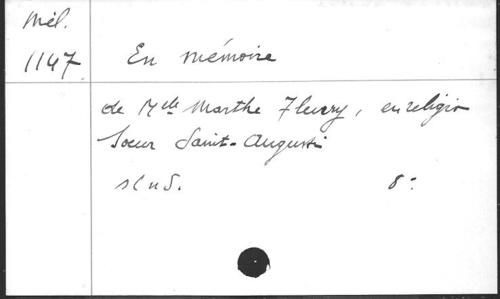 Mél.
1147
En mémoire
de Mlle Marthe Fleury, en religion
Soeur Saint-Augustin
s l n d.
8°